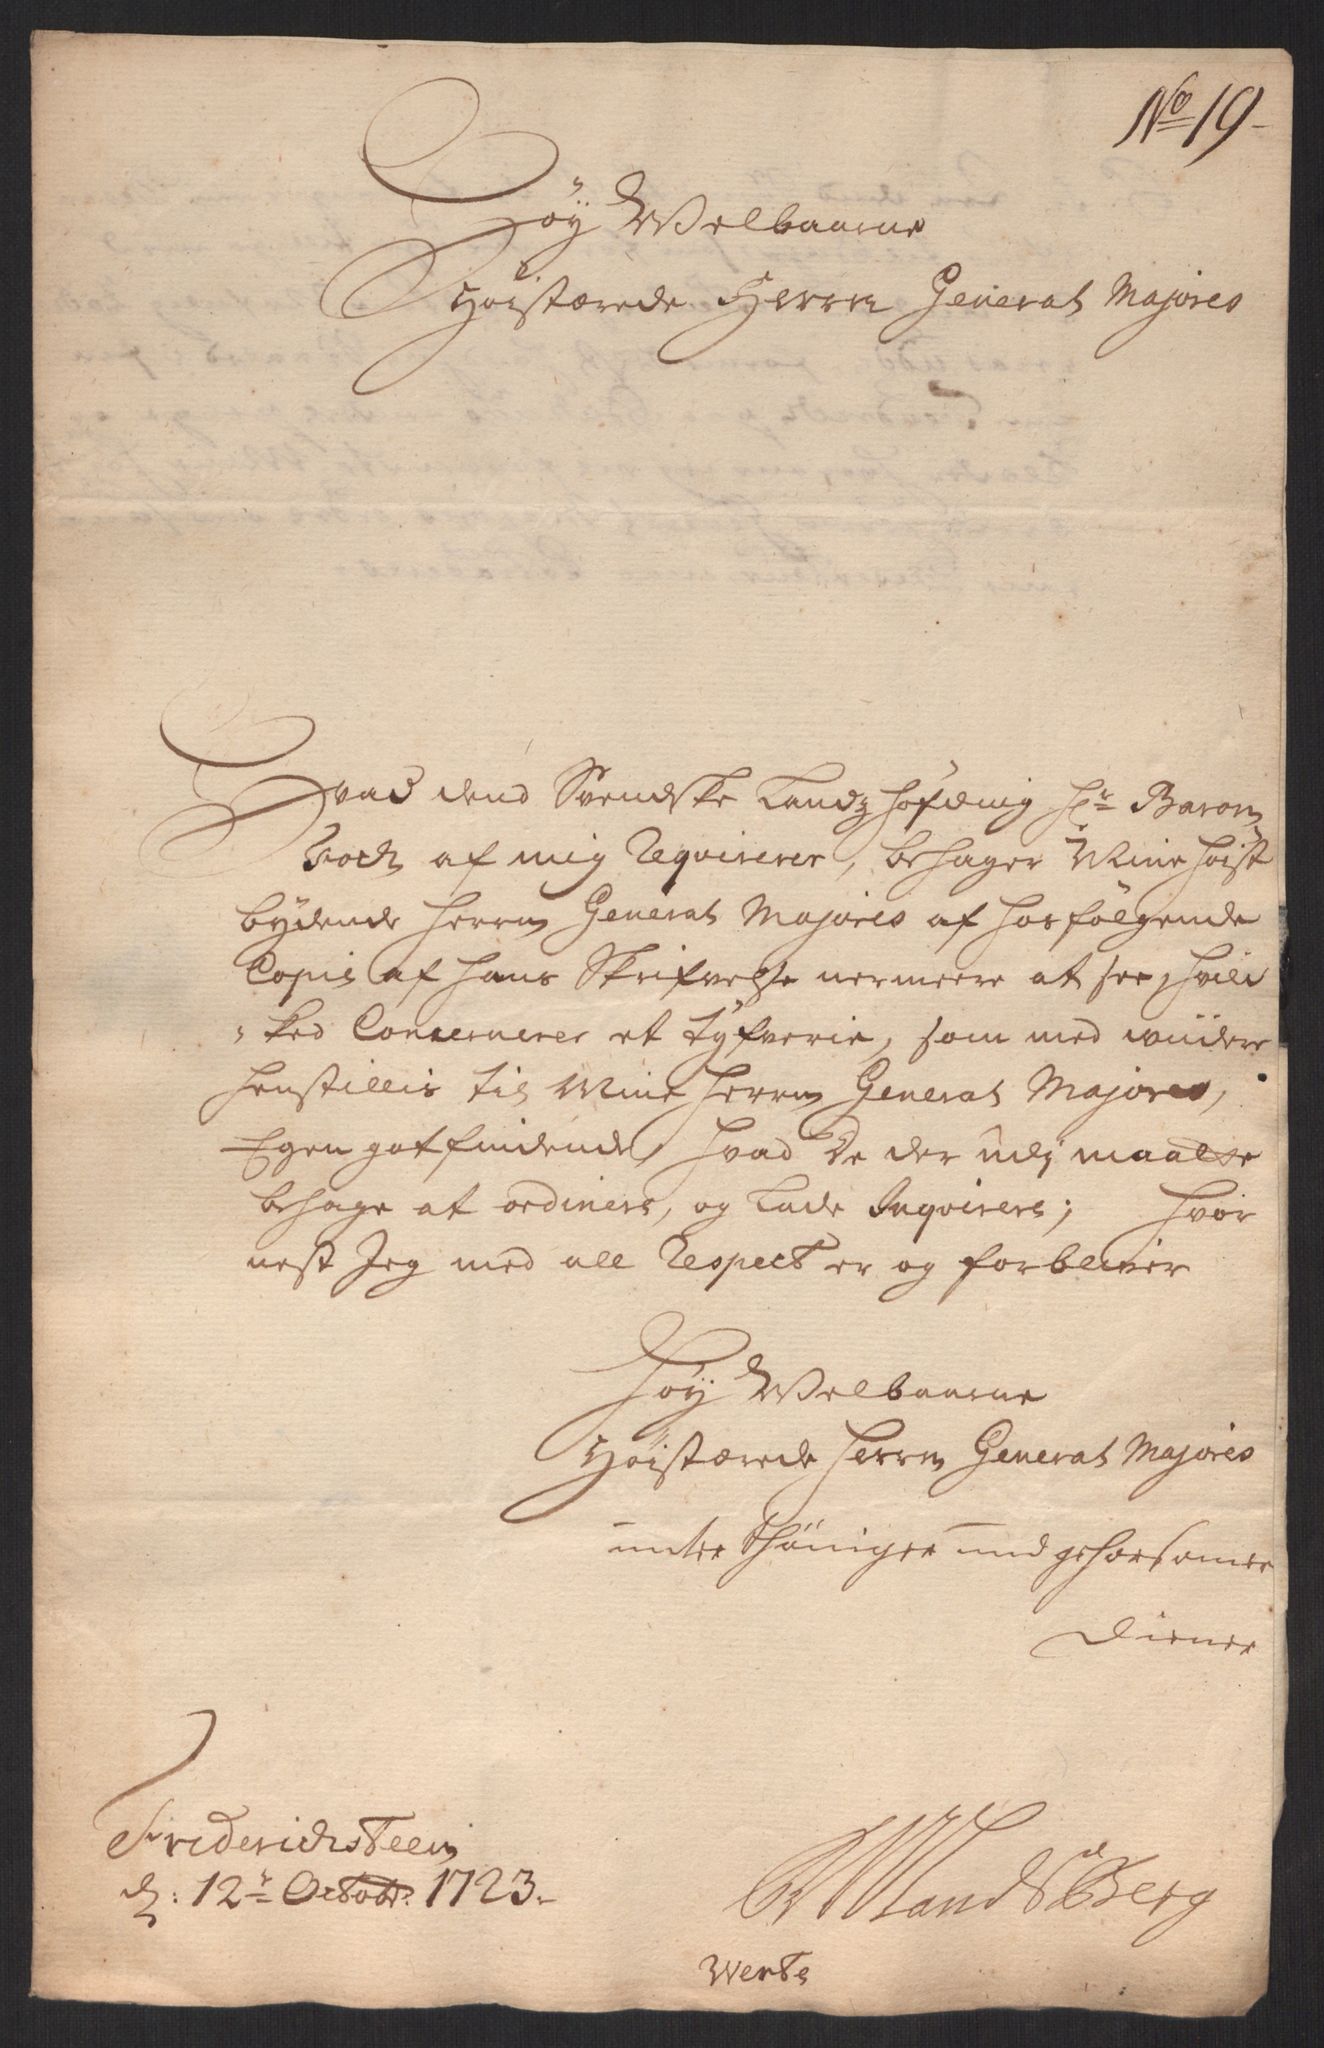 No 19
Høy Welbaarne
Høistærede Herrn General Majores
Hvad dend Svendske Landz høfding Hr Baron
af mig Reqvirerer, behager Mine høist
bydende Herrn General Majores af hosfølgende
Copie af hans Skrifvelse nermere at see, hvil
ked Concernerer et Tyfverie, som med widere
henstillis til Mine Herrn General Majores,
Egen gotfindende, hvad De der udj maatte
behage at ordinere, og Lade Inqvirere; hvor
nest Jeg med all Respect er og forblifver
Høy Welbaarne
Høistærede Herrn General Majores
unterthäniger und gehorsamer
Diener
Friderichsteen
d: 12r Octobr. 1723.
Landsberg
Verte